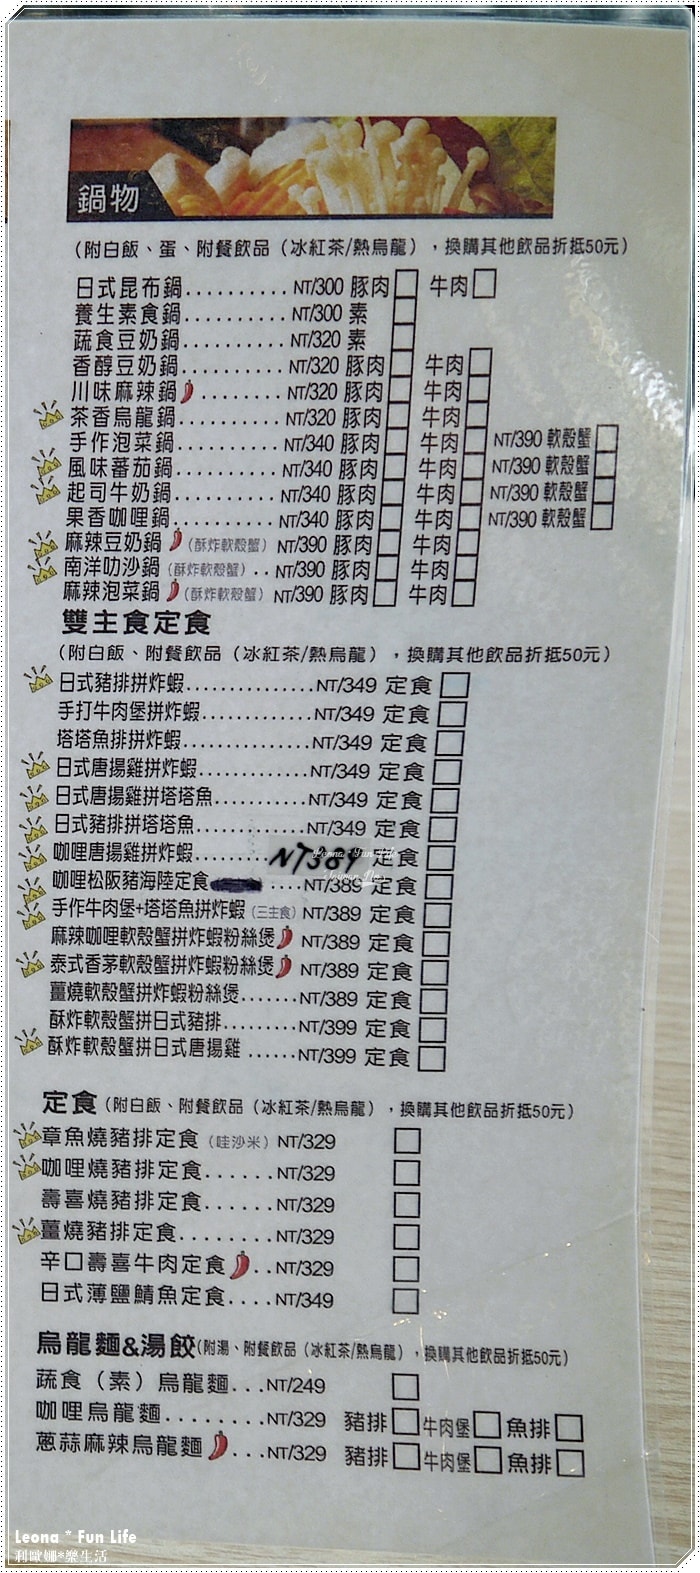 鍋物
（附白飯、蛋、附餐飲品（冰紅茶/熱烏龍），換購其他飲品折抵50元）
日式昆布鍋..........NT/300 豚肉□ 牛肉□
養生素食鍋..........NT/300 素□
蔬食豆奶鍋..........NT/320 素□
香醇豆奶鍋..........NT/320 豚肉□ 牛肉□
川味麻辣鍋........NT/320 豚肉□ 牛肉□
茶香烏龍鍋..........NT/320 豚肉□ 牛肉□
手作泡菜鍋..........NT/340 豚肉□ 牛肉□ NT/390 軟殼蟹□
風味蕃茄鍋..........NT/340 豚肉□ 牛肉□ NT/390 軟殼蟹□
起司牛奶鍋..........NT/340 豚肉□ 牛肉□ NT/390 軟殼蟹□
果香咖哩鍋..........NT/340 豚肉□ 牛肉□ NT/390 軟殼蟹□
麻辣豆奶鍋（酥炸軟殼蟹）NT/390 豚肉□ 牛肉□
南洋叻沙鍋（酥炸軟殼蟹）..NT/390 豚肉□ 牛肉□
麻辣泡菜鍋（酥炸軟殼蟹）NT/390 豚肉□ 牛肉□
雙主食定食
（附白飯、附餐飲品（冰紅茶/熱烏龍），換購其他飲品折抵50元）
日式豬排拼炸蝦..............NT/349 定食□
手打牛肉堡拼炸蝦............NT/349 定食□
塔塔魚排拼炸蝦..............NT/349 定食□
日式唐揚雞拼炸蝦............NT/349 定食□
日式唐揚雞拼塔塔魚..........NT/349 定食□
日式豬排拼塔塔魚............NT/349 定食□
咖哩唐揚雞拼炸蝦........NT389 定食□
咖哩松阪豬海陸定食....NT/389 定食□
手作牛肉堡+塔塔魚拼炸蝦（三主食）NT/389 定食□
麻辣咖哩軟殼蟹拼炸蝦粉絲煲 NT/389 定食□
泰式香茅軟殼蟹拼炸蝦粉絲煲 NT/389 定食□
薑燒軟殼蟹拼炸蝦粉絲煲.......NT/389 定食□
酥炸軟殼蟹拼日式豬排.........NT/399 定食□
酥炸軟殼蟹拼日式唐揚雞......NT/399 定食□
定食（附白飯、附餐飲品（冰紅茶/熱烏龍），換購其他飲品折抵50元）
章魚燒豬排定食（哇沙米）NT/329 □
咖哩燒豬排定食......NT/329 □
壽喜燒豬排定食......NT/329 □
薑燒豬排定食........NT/329 □
辛口壽喜牛肉定食..NT/329 □
日式薄鹽鯖魚定食....NT/349 □
烏龍麵&湯餃(附湯、附餐飲品（冰紅茶/熱烏龍），換購其他飲品折抵50元）
蔬食（素）烏龍麵...NT/249 □
咖哩烏龍麵.........NT/329 豬排□牛肉堡□魚排□
蔥蒜麻辣烏龍麵...NT/329 豬排□牛肉堡□魚排□
Leona * Fun Life
利歐娜*樂生活